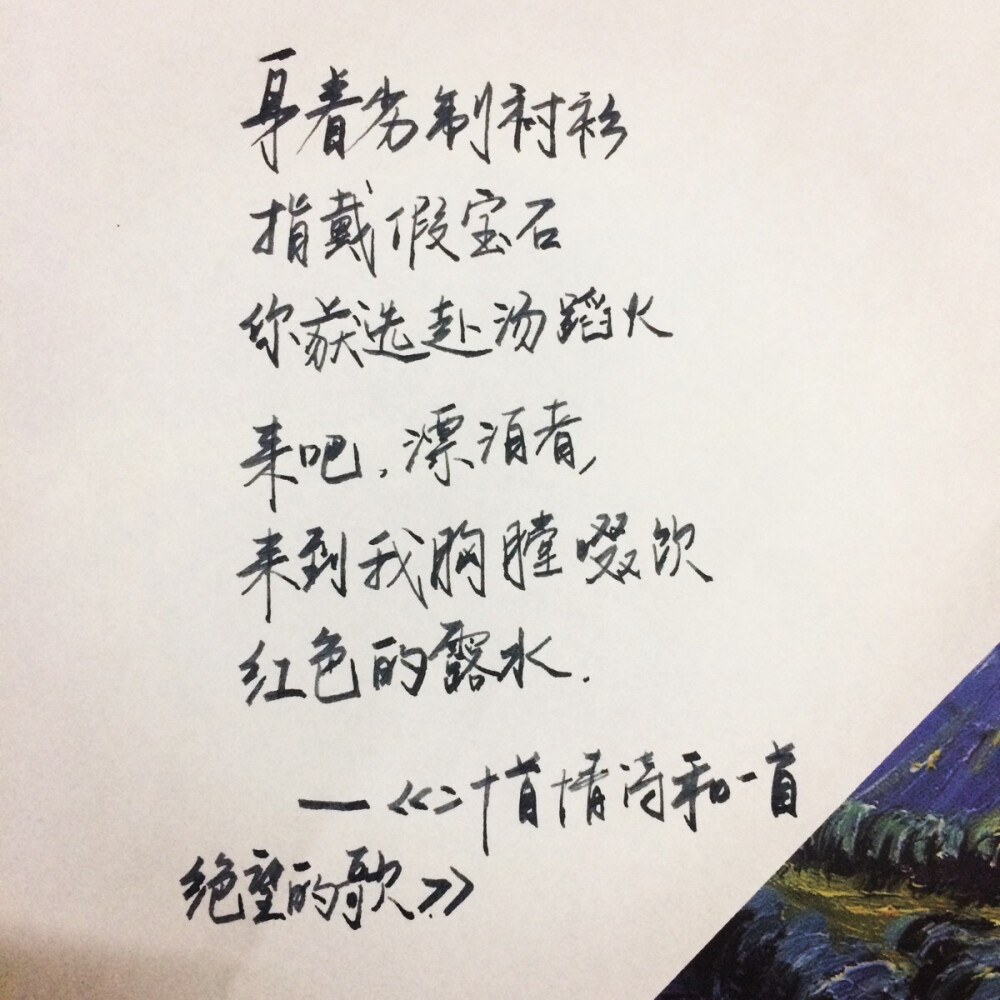 身着劣制衬衫
指戴假宝石
你获选赴汤蹈火
来吧，漂泊者，
来到我胸膛啜饮
红色的露水.
——《二十首情诗和一首
绝望的歌》